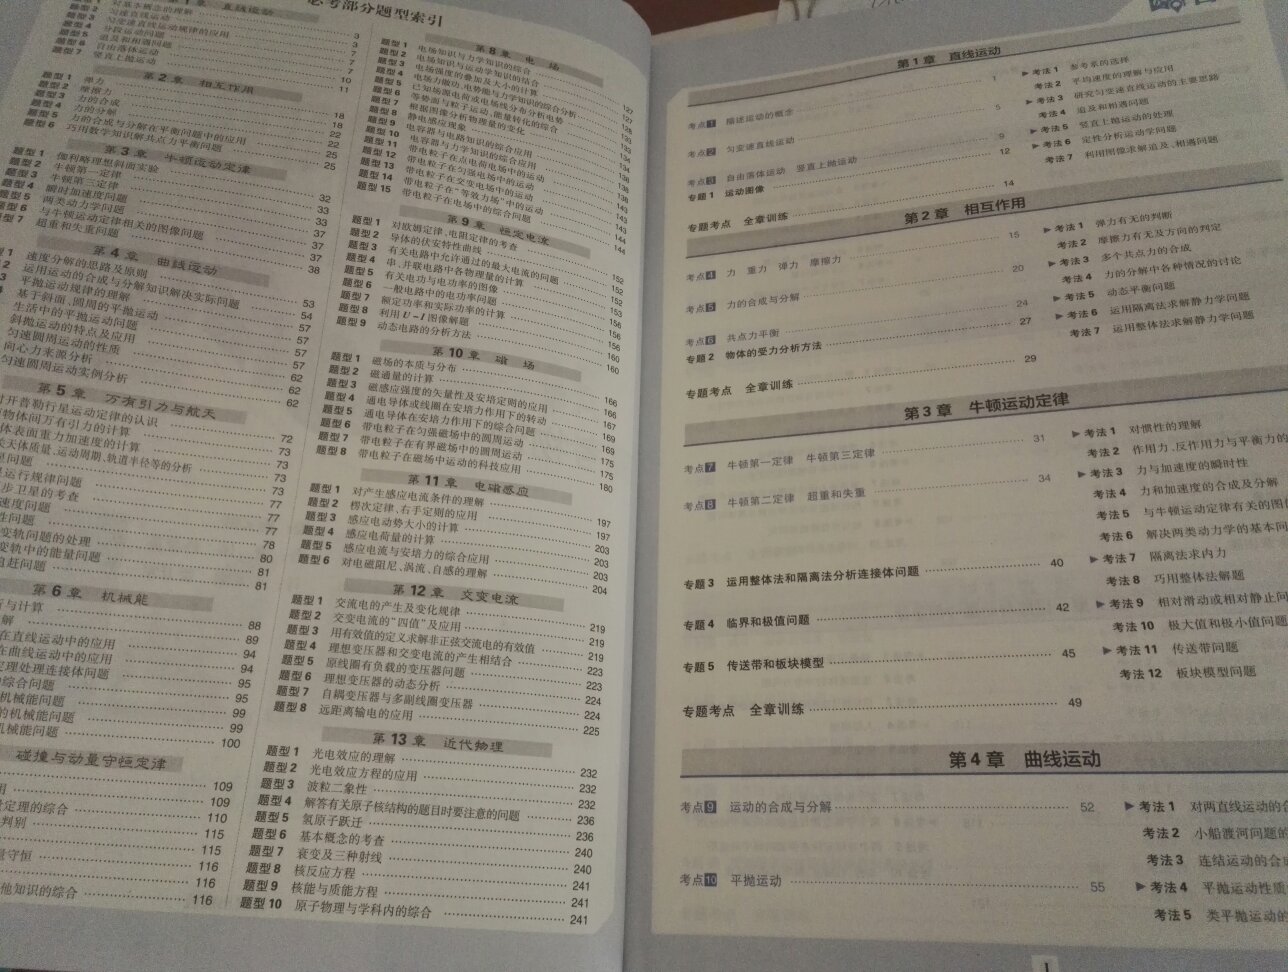 必考部分题型索引
第1章 直线运动
题型2 匀速直线运动
题型3 匀变速直线运动规律的应用 3
题型4 分段运动问题 7
题型5 追及和相遇问题 7
题型6 自由落体运动 10
题型7 竖直上抛运动 11
第2章 相互作用
题型1 弹力 18
题型2 摩擦力 18
题型3 力的合成 22
题型4 力的分解 22
题型5 力的合成与分解在平衡问题中的应用 25
题型6 巧用数学知识解共点力平衡问题 25
第3章 牛顿运动定律
题型1 伽利略理想斜面实验 32
题型2 牛顿第一定律 33
题型3 牛顿第三定律 33
题型4 瞬时加速度问题 37
题型5 两类动力学问题 37
题型6 与牛顿运动定律相关的图像问题 37
题型7 超重和失重问题 38
第4章 曲线运动
速度分解的思路及原则 53
运用运动的合成与分解知识解决实际问题 54
平抛运动规律的理解 57
基于斜面、圆周的平抛运动 57
生活中的平抛运动问题 57
斜抛运动的特点及应用 57
匀速圆周运动的性质 62
向心力来源分析 62
匀速圆周运动实例分析 62
第5章 万有引力与航天
对开普勒行星运动定律的认识 72
物体间万有引力的计算 73
体表面重力加速度的计算 73
天体质量、运动周期、轨道半径等的分析 73
运行规律问题 73
步卫星的考查 77
速度问题 77
性问题 77
变轨问题的处理 78
变轨中的能量问题 80
追赶问题 81
81
第6章 机械能
与计算 88
解 89
在直线运动中的应用 94
在曲线运动中的应用 94
定理处理连接体问题 95
综合问题 95
机械能问题 99
的机械能问题 99
机械能问题 100
碰撞与动量守恒定律
109
用 109
量定理的综合 110
判别 115
115
量守恒 116
116
他知识的综合 116
第8章 电场
题型1 电场知识与力学知识的综合
题型2 电场知识与运动学知识的结合 127
题型3 电场强度的叠加及大小的计算 127
题型4 电场力做功、电势能与力学知识的综合分析
题型5 已知场源电荷或电场线分布分析电势
题型6 等势面与粒子运动、能量转化的综合
题型7 根据图像分析物理量的变化
题型8 静电感应现象
题型9 电容器与电路知识的综合应用
题型10 电容器与力学知识的综合
题型11 带电粒子在点电荷电场中的运动
题型12 带电粒子在匀强电场中的运动
题型13 带电粒子在交变电场中的运动 143
题型14 带电粒子在“等效力场”中的运动 143
题型15 带电粒子在电场中的综合问题 144
第9章 恒定电流
题型1 对欧姆定律、电阻定律的考查 152
题型2 导体的伏安特性曲线 152
题型3 有关电路中允许通过的最大电流的问题 152
题型4 串、并联电路中各物理量的计算 153
题型5 有关电功与电功率的图像 156
题型6 一般电路中的电功率问题 156
题型7 额定功率和实际功率的计算 156
题型8 利用U-I图像解题 160
题型9 动态电路的分析方法 160
第10章 磁场
题型1 磁场的本质与分布 166
题型2 磁通量的计算 166
题型3 磁感应强度的矢量性及安培定则的应用 167
题型4 通电导体或线圈在安培力作用下的转动 169
题型5 通电导体在安培力作用下的综合问题 169
题型6 带电粒子在匀强磁场中的圆周运动 175
题型7 带电粒子在有界磁场中的圆周运动 175
题型8 带电粒子在磁场中运动的科技应用 180
第11章 电磁感应
题型1 对产生感应电流条件的理解 197
题型2 楞次定律、右手定则的应用 197
题型3 感应电动势大小的计算 203
题型4 感应电荷量的计算 203
题型5 感应电流与安培力的综合应用 203
题型6 对电磁阻尼、涡流、自感的理解 204
第12章 交变电流
题型1 交流电的产生及变化规律 219
题型2 交变电流的“四值”及应用 219
题型3 用有效值的定义求解非正弦交流电的有效值 219
题型4 理想变压器和交变电流的产生相结合 223
题型5 原线圈有负载的变压器问题 223
题型6 理想变压器的动态分析 224
题型7 自耦变压器与多副线圈变压器 224
题型8 远距离输电的应用 225
第13章 近代物理
题型1 光电效应的理解 232
题型2 光电效应方程的应用 232
题型3 波粒二象性 232
题型4 解答有关原子核结构的题目时要注意的问题 236
题型5 氢原子跃迁 236
题型6 基本概念的考查 240
题型7 衰变及三种射线 240
题型8 核反应方程 241
题型9 核能与质能方程 241
题型10 原子物理与学科内的综合 241
第1章 直线运动
考点1 描述运动的概念 1
考点2 匀变速直线运动 5
考点3 自由落体运动 竖直上抛运动 9
专题1 运动图像 12
专题考点 全章训练 14
▶考法1 参考系的选择
考法2 平均速度的理解与应用
▶考法3 研究匀变速直线运动的主要思路
考法4 追及和相遇问题
▶考法5 竖直上抛运动的处理
▶考法6 定性分析运动学问题
考法7 利用图像求解追及、相遇问题
第2章 相互作用
考点4 力 重力 弹力 摩擦力 15
考点5 力的合成与分解 20
考点6 共点力平衡 24
专题2 物体的受力分析方法 27
专题考点 全章训练 29
▶考法1 弹力有无的判断
考法2 摩擦力有无及方向的判定
▶考法3 多个共点力的合成
考法4 力的分解中各种情况的讨论
▶考法5 动态平衡问题
▶考法6 运用隔离法求解静力学问题
考法7 运用整体法求解静力学问题
第3章 牛顿运动定律
考点7 牛顿第一定律 牛顿第三定律 31
考点8 牛顿第二定律 超重和失重 34
专题3 运用整体法和隔离法分析连接体问题 40
专题4 临界和极值问题 42
专题5 传送带和板块模型 45
专题考点 全章训练 49
▶考法1 对惯性的理解
考法2 作用力、反作用力与平衡力的
▶考法3 力与加速度的瞬时性
考法4 力和加速度的合成及分解
考法5 与牛顿运动定律有关的图像
考法6 解决两类动力学的基本问
▶考法7 隔离法求内力
考法8 巧用整体法解题
▶考法9 相对滑动或相对静止问
考法10 极大值和极小值问题
▶考法11 传送带问题
考法12 板块模型问题
第4章 曲线运动
考点9 运动的合成与分解 52
考点10 平抛运动 55
▶考法1 对两直线运动的合
考法2 小船渡河问题的
考法3 连结运动的合
▶考法4 平抛运动性质
考法5 类平抛运动的
1